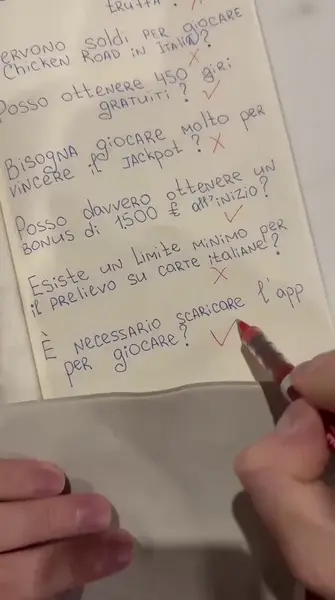 TRUFFA?
SERVONO SOLDI PER GIOCARE
CHICKEN ROAD IN ITALIA?
POSSO OTTENERE 450 GIRI
GRATUITI?
BISOGNA GIOCARE MOLTO PER
VINCERE il JACKPOT?
POSSO DAVVERO OTTENERE UN
BONUS DI 1500 € all'INIZIO?
ESISTE UN LIMITE MINIMO PER
il PRELIEVO SU CARTE ITALIANE?
È NECESSARIO SCARICARE l'APP
PER GIOCARE?